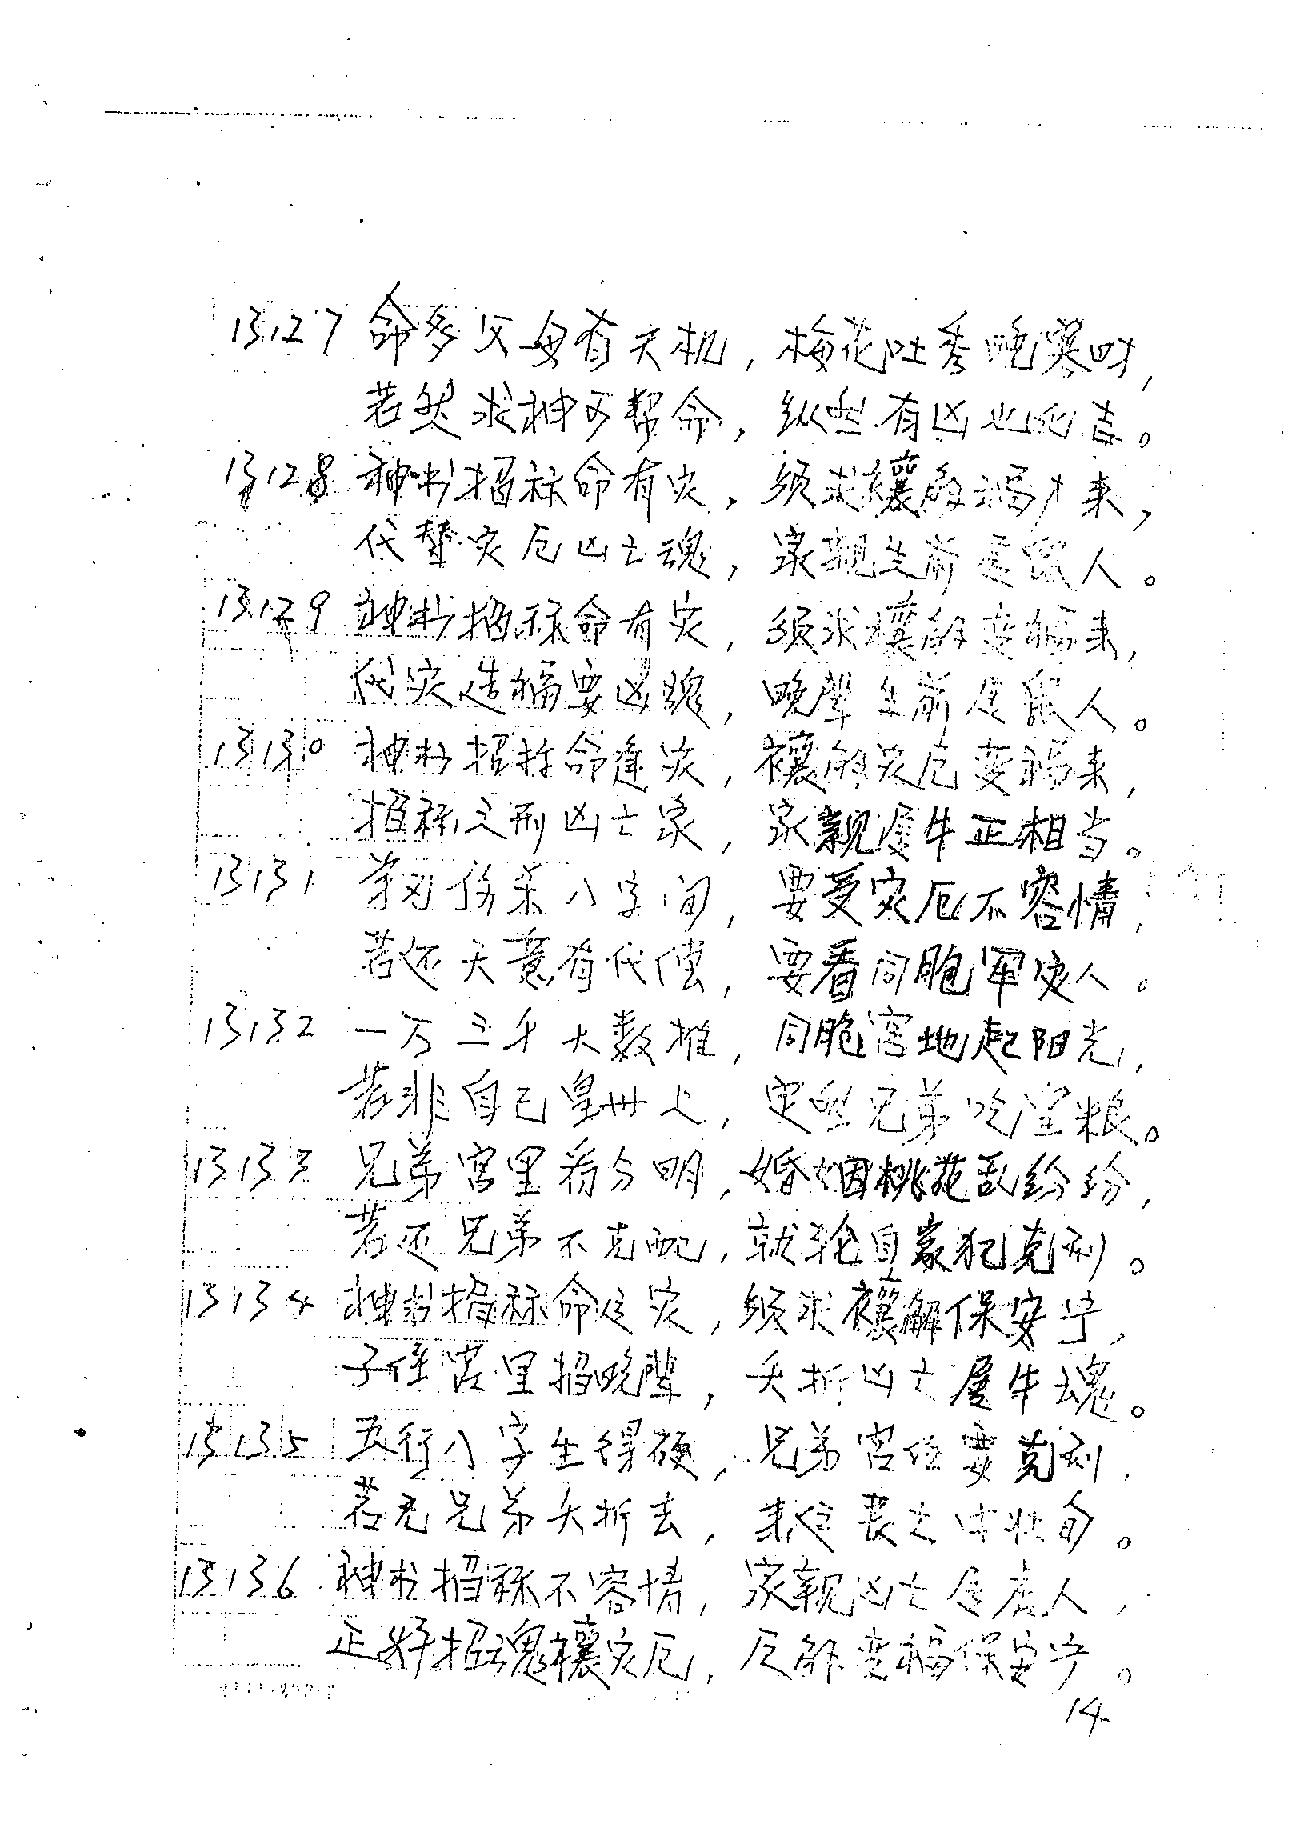 13127 命多父母有天机，梅花吐秀晚寒时，
若然求神可帮命，纵然有凶也化吉。
13128 神书招称命有灾，须求禳解福才来，
代替灾厄凶亡魂，家亲生前是鼠人。
13129 神书招称命有灾，须求禳解变福来，
代灾造福要凶魂，晚辈生前属鼠人。
13130 神书招称命逢灾，禳解灾厄变福来，
招称之刑凶亡家，家亲属牛正相当。
13131 羊刃伤杀八字间，要受灾厄不容情，
若还天意有代偿，要看同胞军灾人。
13132 一万三千大数推，同胞宫地起阳光，
若非自己皇州上，定然兄弟吃皇粮。
13133 兄弟宫里看分明，婚姻桃花乱纷纷，
若还兄弟不克配，就轮自家犯克刑。
13134 神书招称命逢灾，须求禳解保安宁，
子侄宫里招晚辈，夭折凶亡属牛魂。
13135 五行八字生得硬，兄弟宫位要克刑，
若无兄弟夭折去，未老丧亡中壮旬。
13136 神书招称不容情，家亲凶亡属虎人，
正好招魂禳灾厄，厄解变福保安宁。
14